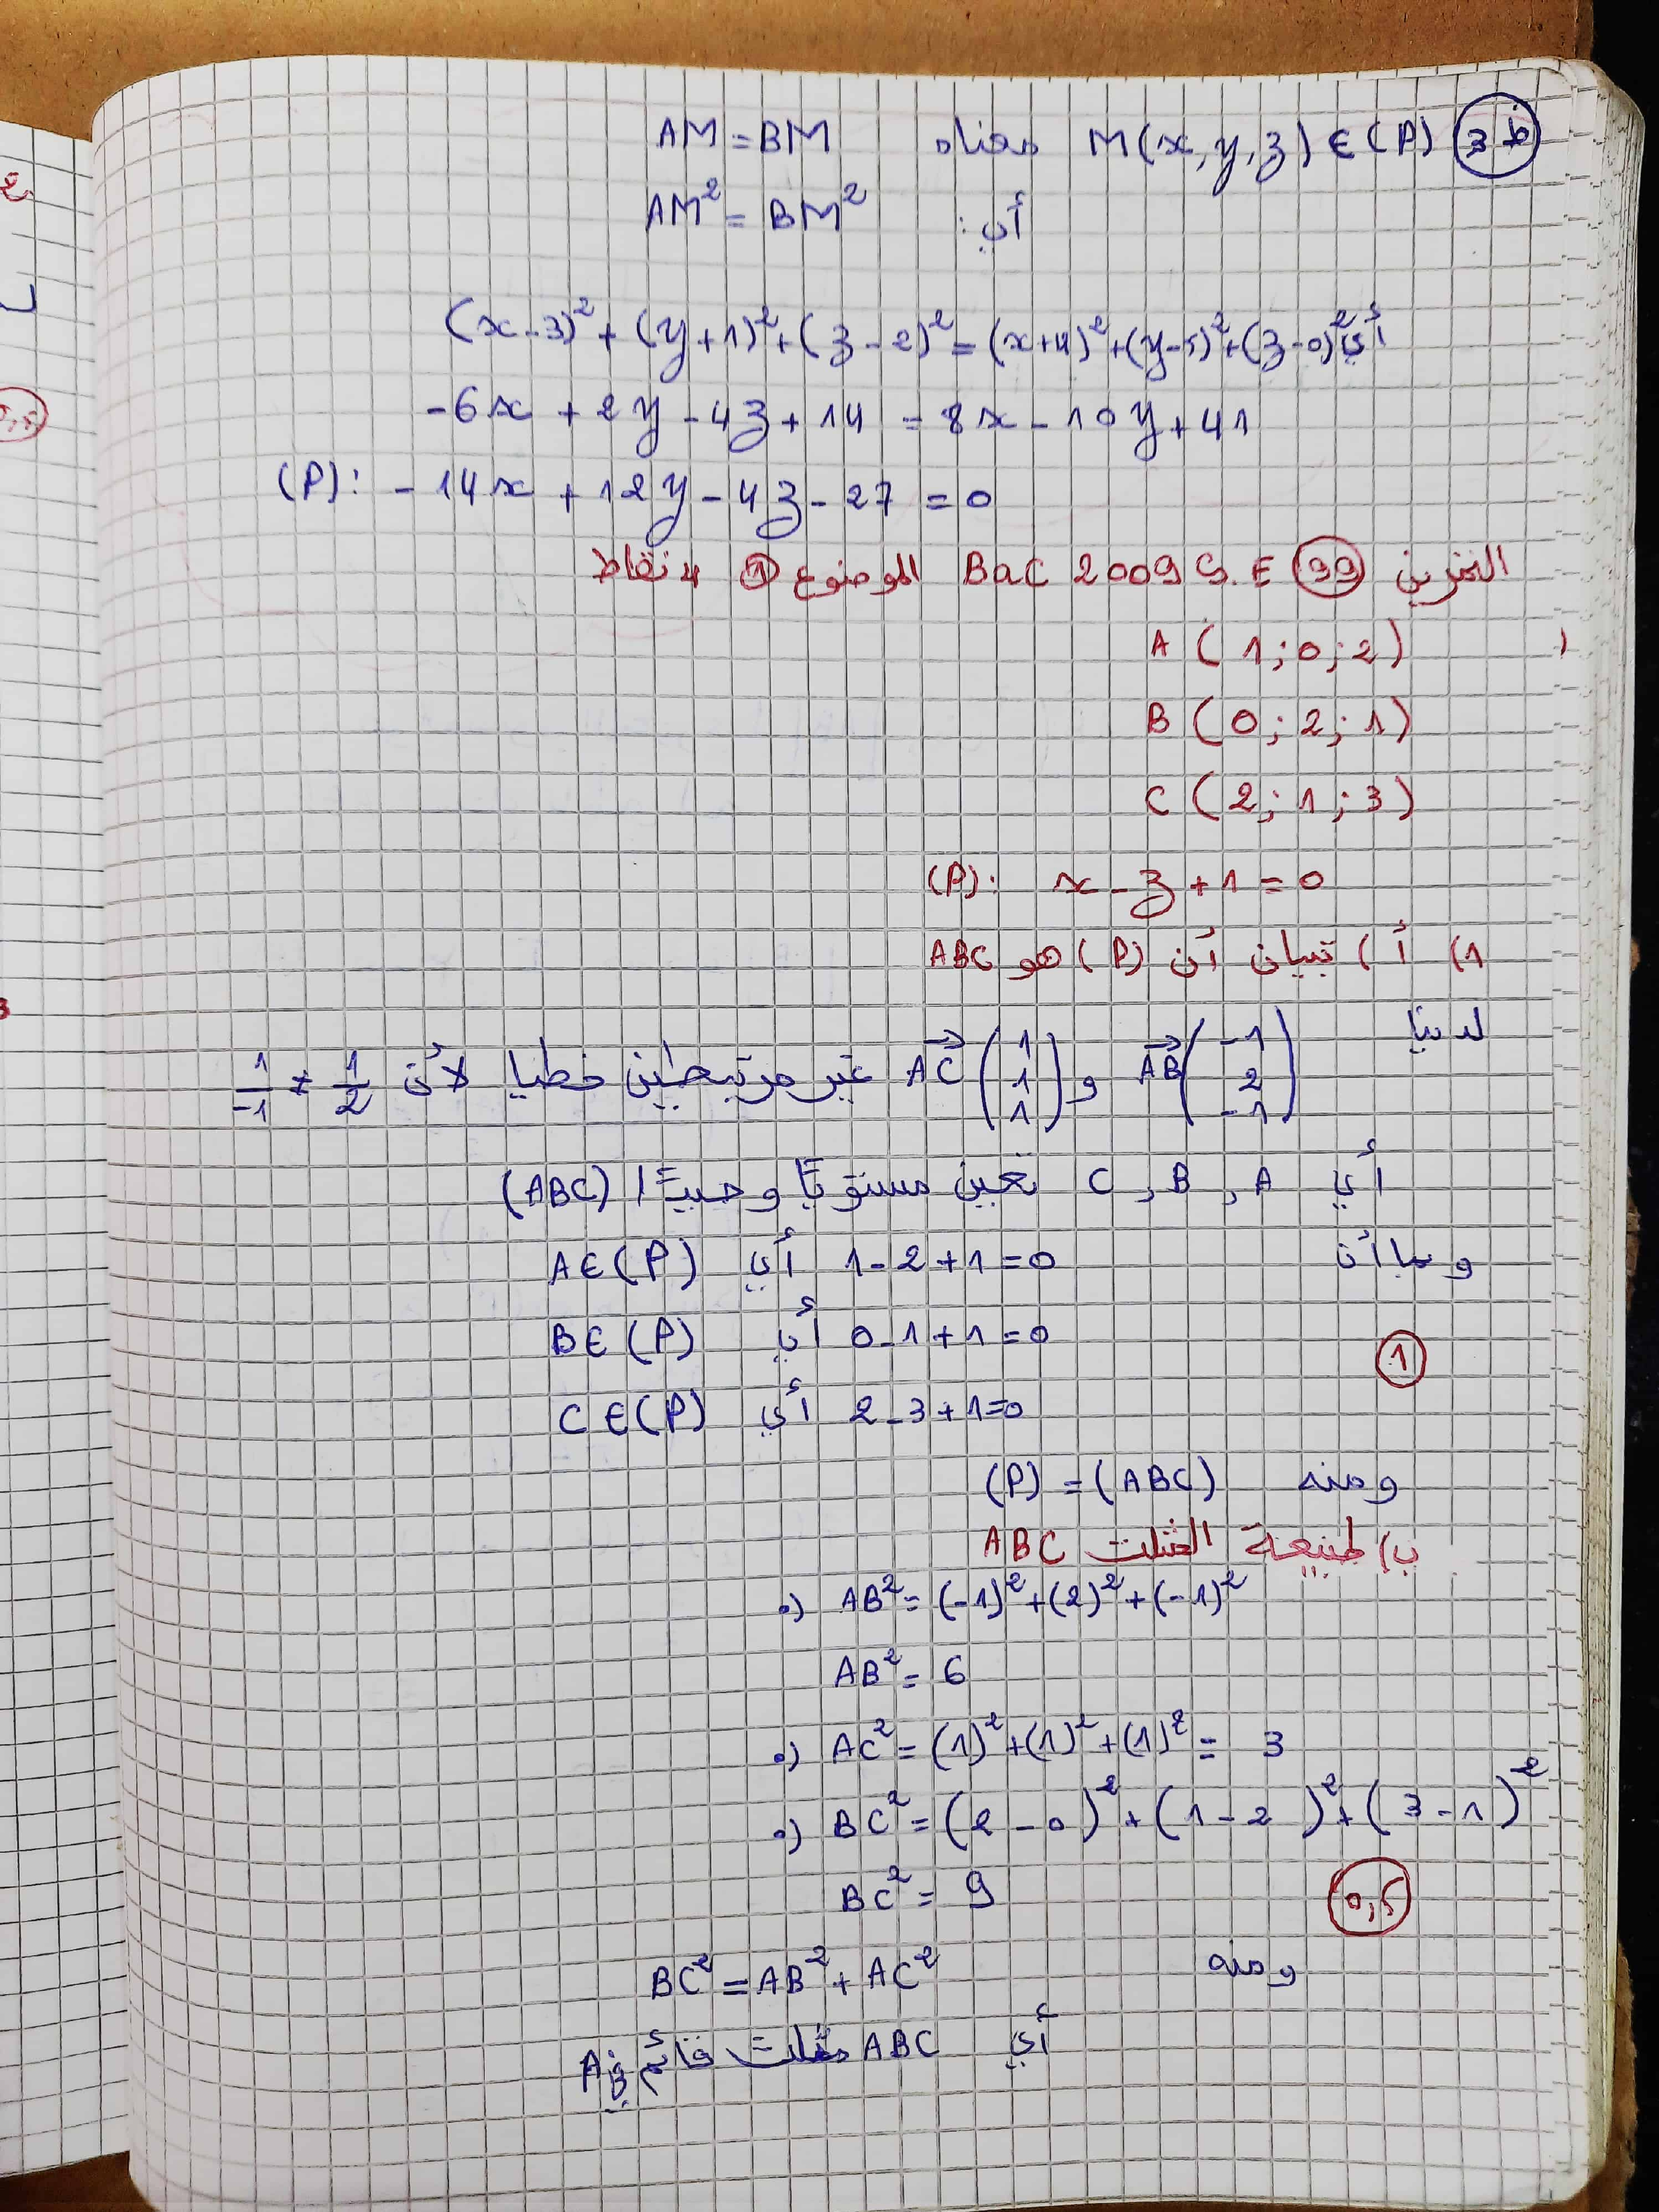 ط 3 M(x, y, z) ∈ (P) معناه AM = BM
أي: AM² = BM²
أي (x-3)² + (y+1)² + (z-2)² = (x+4)² + (y-5)² + (z-0)²
-6x + 2y - 4z + 14 = 8x - 10y + 41
(P): -14x + 12y - 4z - 27 = 0
التمرين 99 BaC 2009 S.E الموضوع 1 4 نقاط
A (1; 0; 2)
B (0; 2; 1)
C (2; 1; 3)
(P): x - z + 1 = 0
1) أ) تبيان أن (P) هو ABC
لدينا AB→(-1 2 -1) و AC→(1 1 1) غير مرتبطين خطيا لأن 1/2 ≠ 1/-1
أي A, B, C تعين مستويًا وحيدًا (ABC)
وبما أن 1 - 2 + 1 = 0 أي A ∈ (P)
0 - 1 + 1 = 0 أي B ∈ (P)
1
2 - 3 + 1 = 0 أي C ∈ (P)
ومنه (P) = (ABC)
ب) طبيعة المثلث ABC
•) AB² = (-1)² + (2)² + (-1)²
AB² = 6
•) AC² = (1)² + (1)² + (1)² = 3
•) BC² = (2 - 0)² + (1 - 2)² + (3 - 1)²
BC² = 9
0,5
ومنه BC² = AB² + AC²
أي ABC مثلث قائم في A